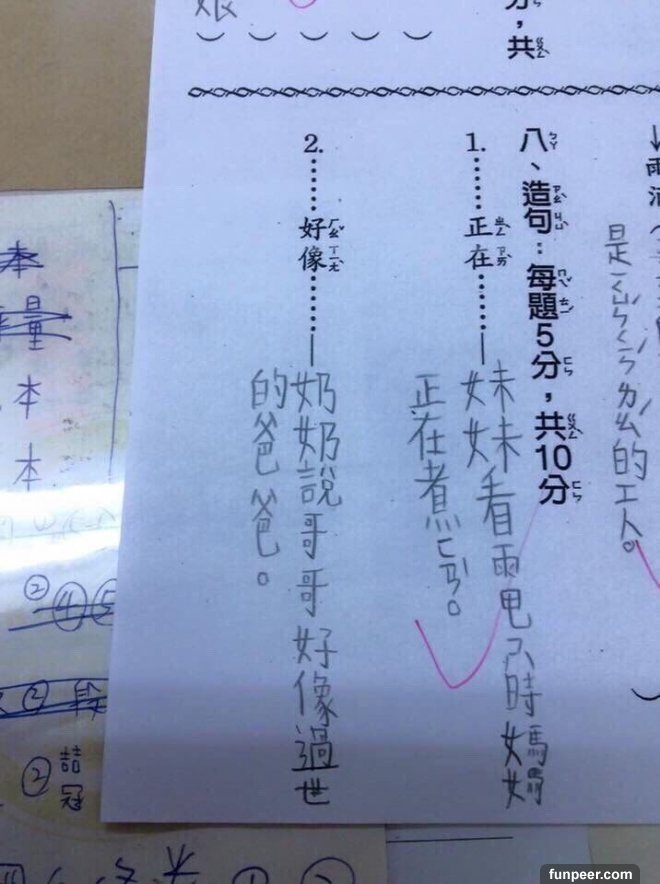 分，共
娘
的工人。
八、造句：每題5分，共10分
1.……正在……—
妹妹看電ㄕˋ時媽媽
正在煮ㄈㄢˋ。
2.……好像……—
奶奶說哥哥好像過世
的爸爸。
本
量
本
本
②④⑤
②段
②喆冠
funpeer.com